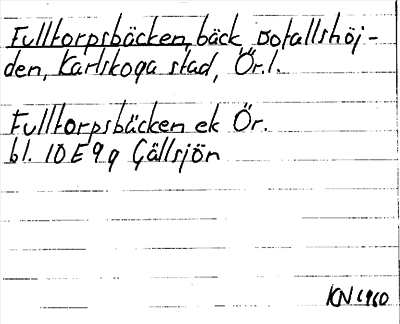 Fulltorpsbäcken, bäck, Botallshöj-
den, Karlskoga stad, Ör.l.
Fulltorpsbäcken ek Ör.
bl. 10E9g Gällsjön
KN 1960